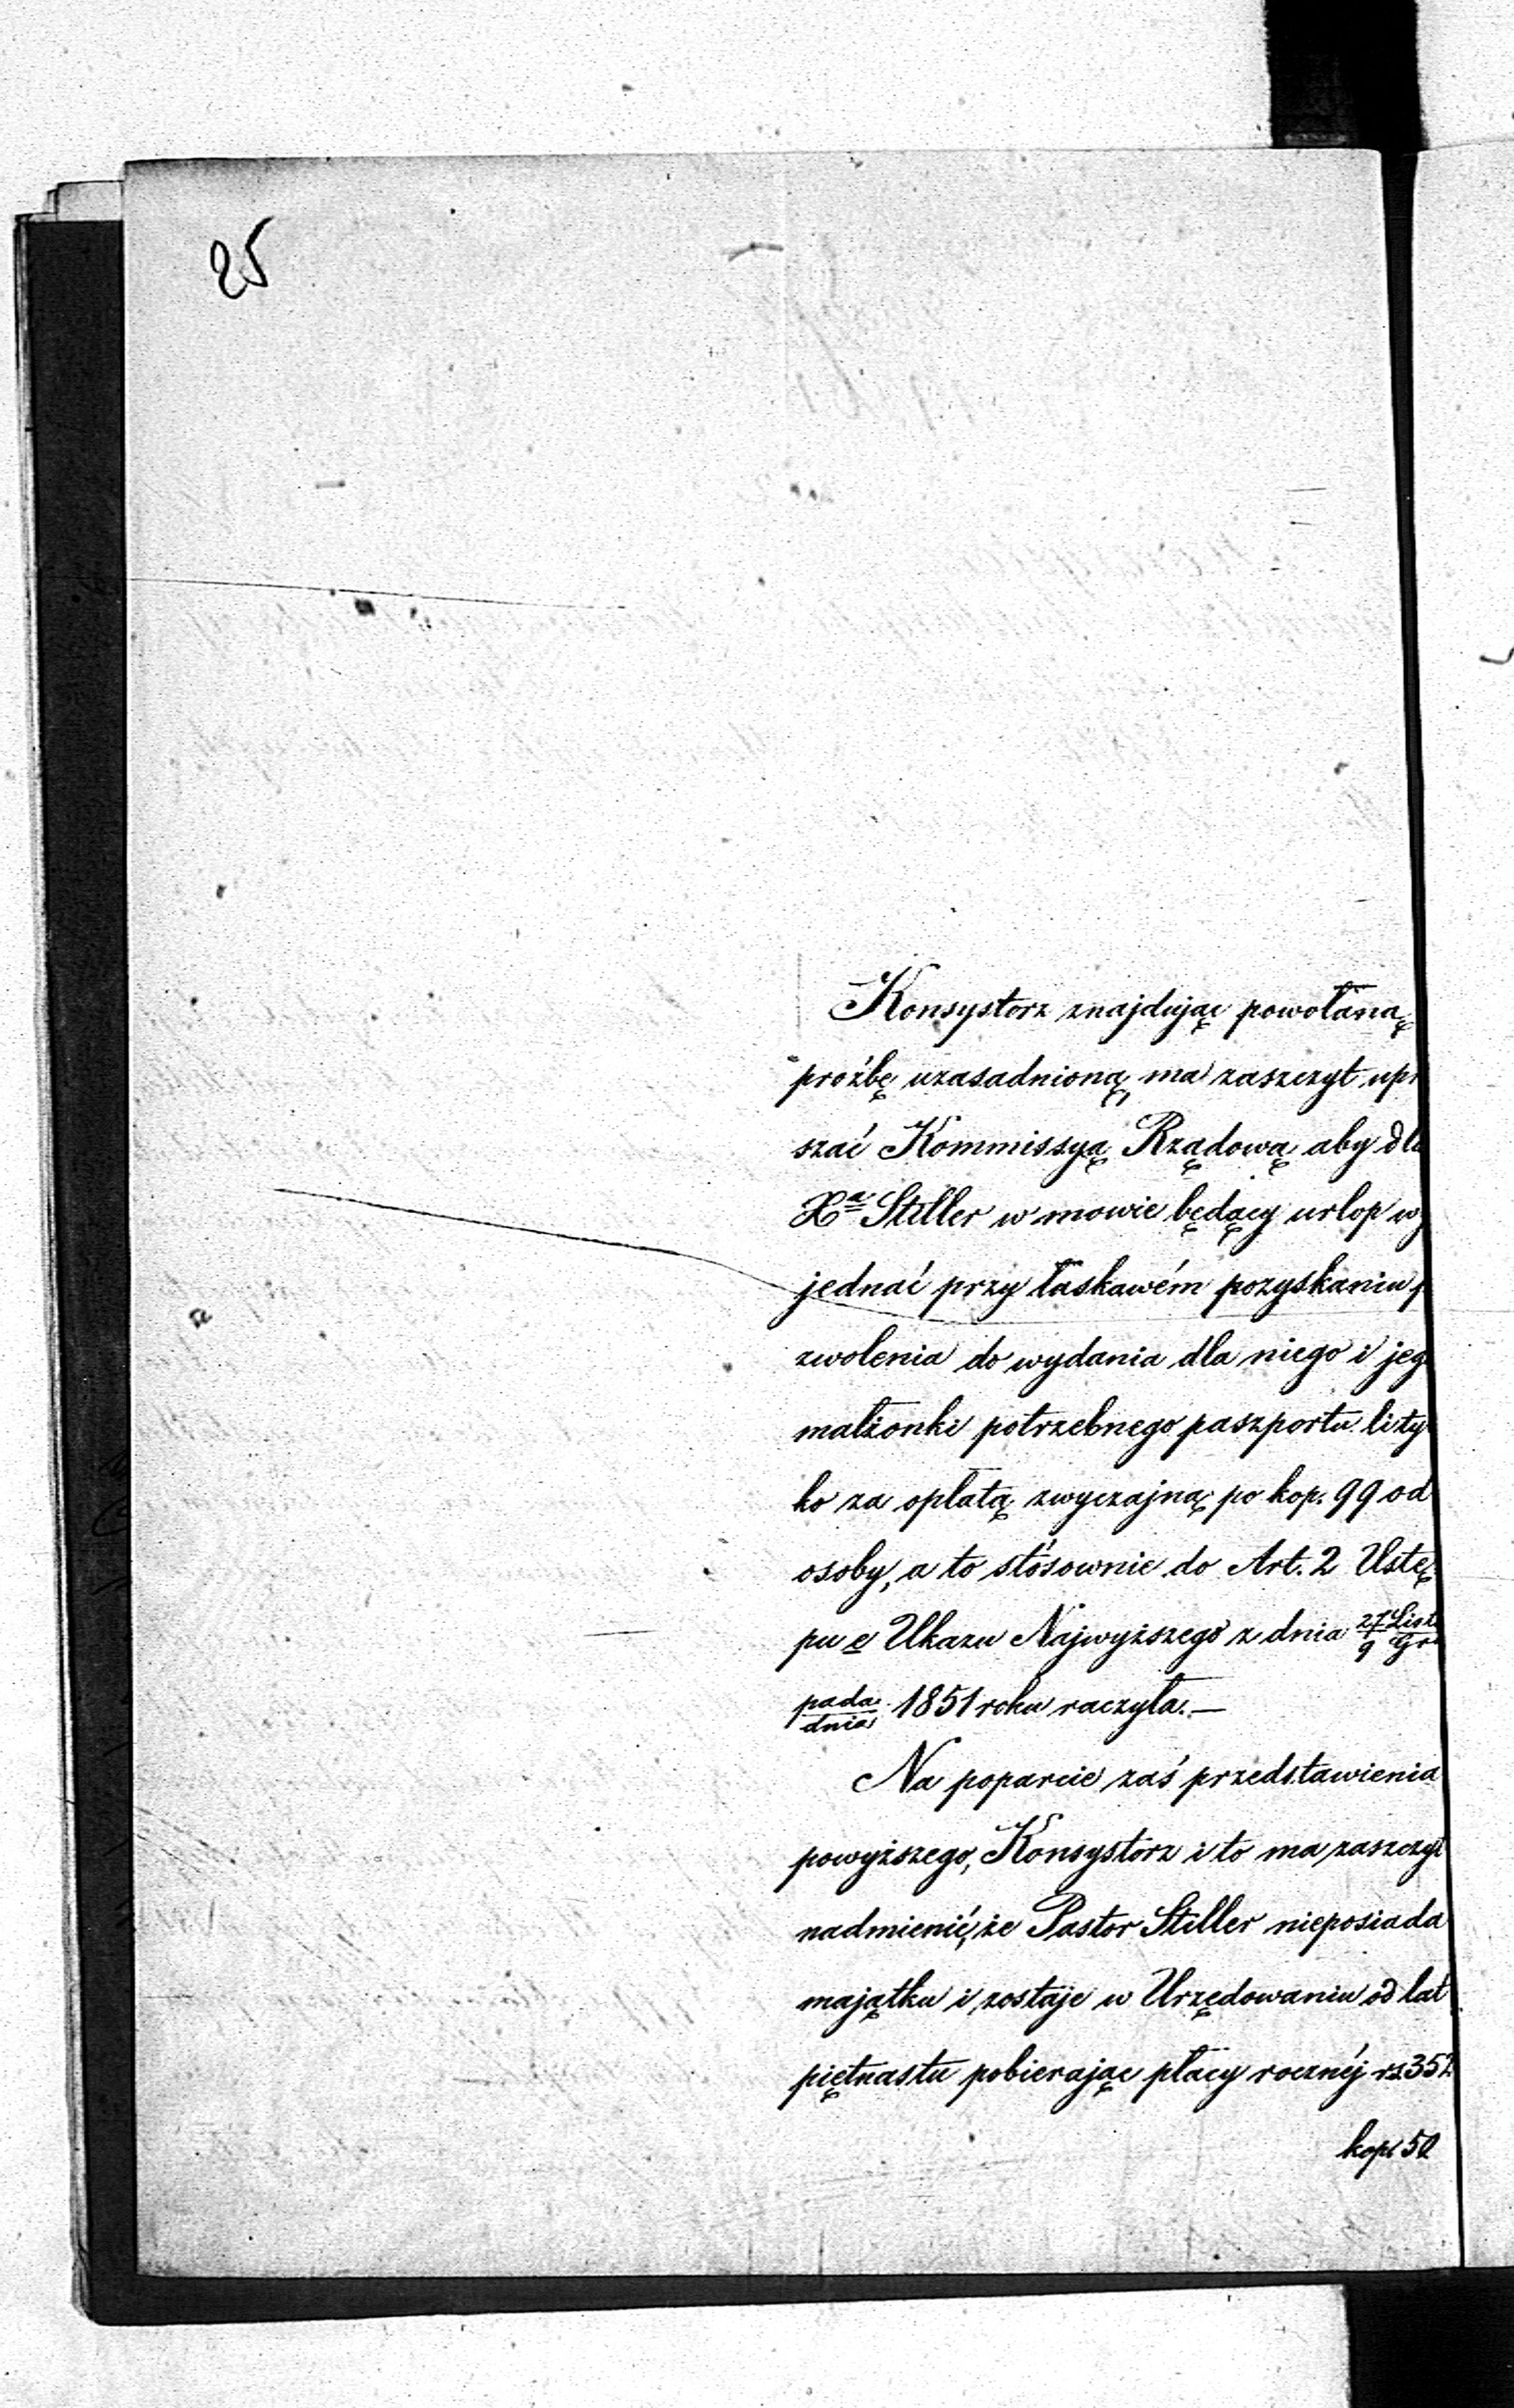 25
Konsystorz znajdując powołaną
proźbę uzasadnioną, ma zaszczyt upr
szać Kommissyą Rządową aby dla
Xa Stiller w mowie będący urlop wy
jednać przy łaskawém pozyskaniu p
zwolenia do wydania dla niego i jeg
małżonki potrzebnego paszportu li tyl
ko za opłatą zwyczajną po kop. 99 od
osoby, a to stósownie do Art. 2 Ustę
pu e Ukazu Najwyższego z dnia 27 List / 9 Gru
pada / dnia 1851 roku raczyła.—
Na poparcie zaś przedstawienia
powyższego, Konsystorz i to ma zaszczyt
nadmienić, że Pastor Stiller nieposiada
majątku i zostaje w Urzędowaniu od lat
piętnastu pobierając płacy rocznéj rs. 352
kop. 50